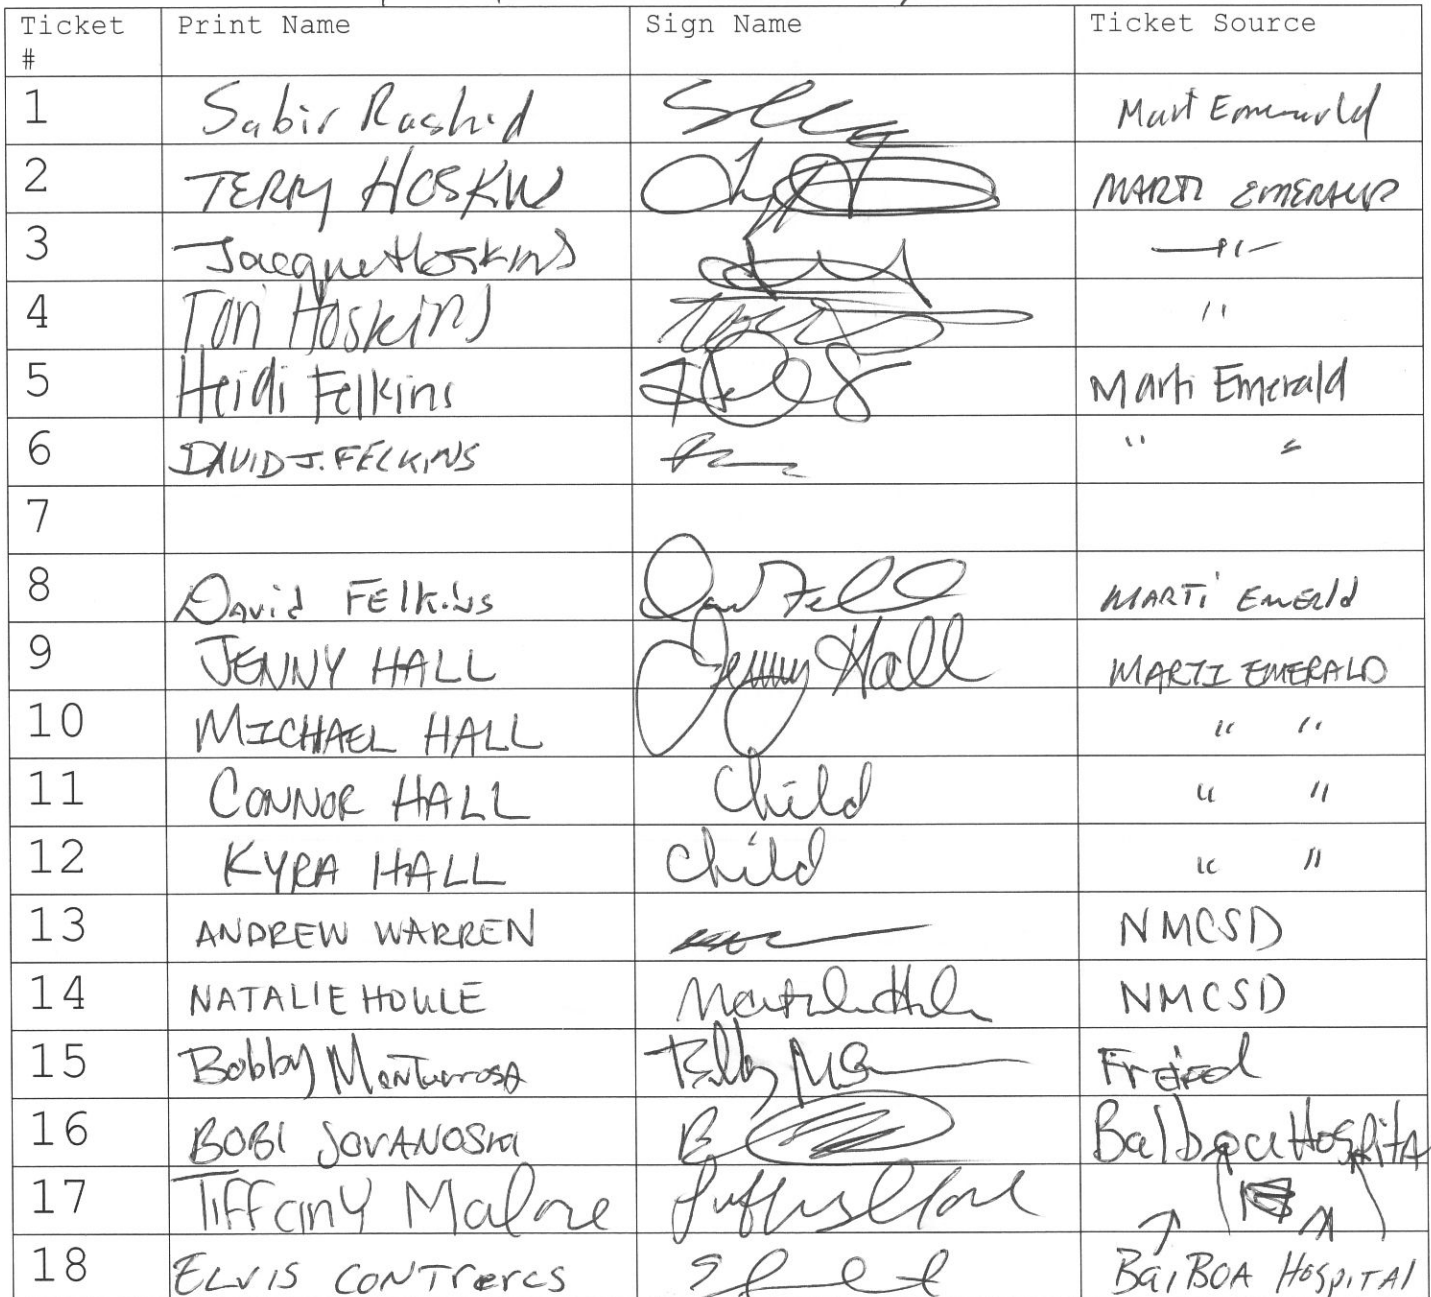 Ticket # Print Name Sign Name Ticket Source
1 Sabir Rashid Mart Emeurld
2 TERRY HOSKIN MARTI EMERALD
3 Jacque Hoskins —"—
4 Tori Hoskins "
5 Heidi Felkins Marti Emerald
6 DAVID J. FELKINS " "
7
8 David FElkins David Fell MARTi EmERld
9 JENNY HALL Jenny Hall MARTI EMERALD
10 MICHAEL HALL " "
11 CONNOR HALL Child " "
12 KYRA HALL Child " "
13 ANDREW WARREN NMCSD
14 NATALIE HOULE NMCSD
15 Bobby Monterrosa
16 BOBI JOVANOSKI B Balboa HospitA
17 Tiffany Malone
18 ELVIS CONTrercs BaiBOA HOSpITAl